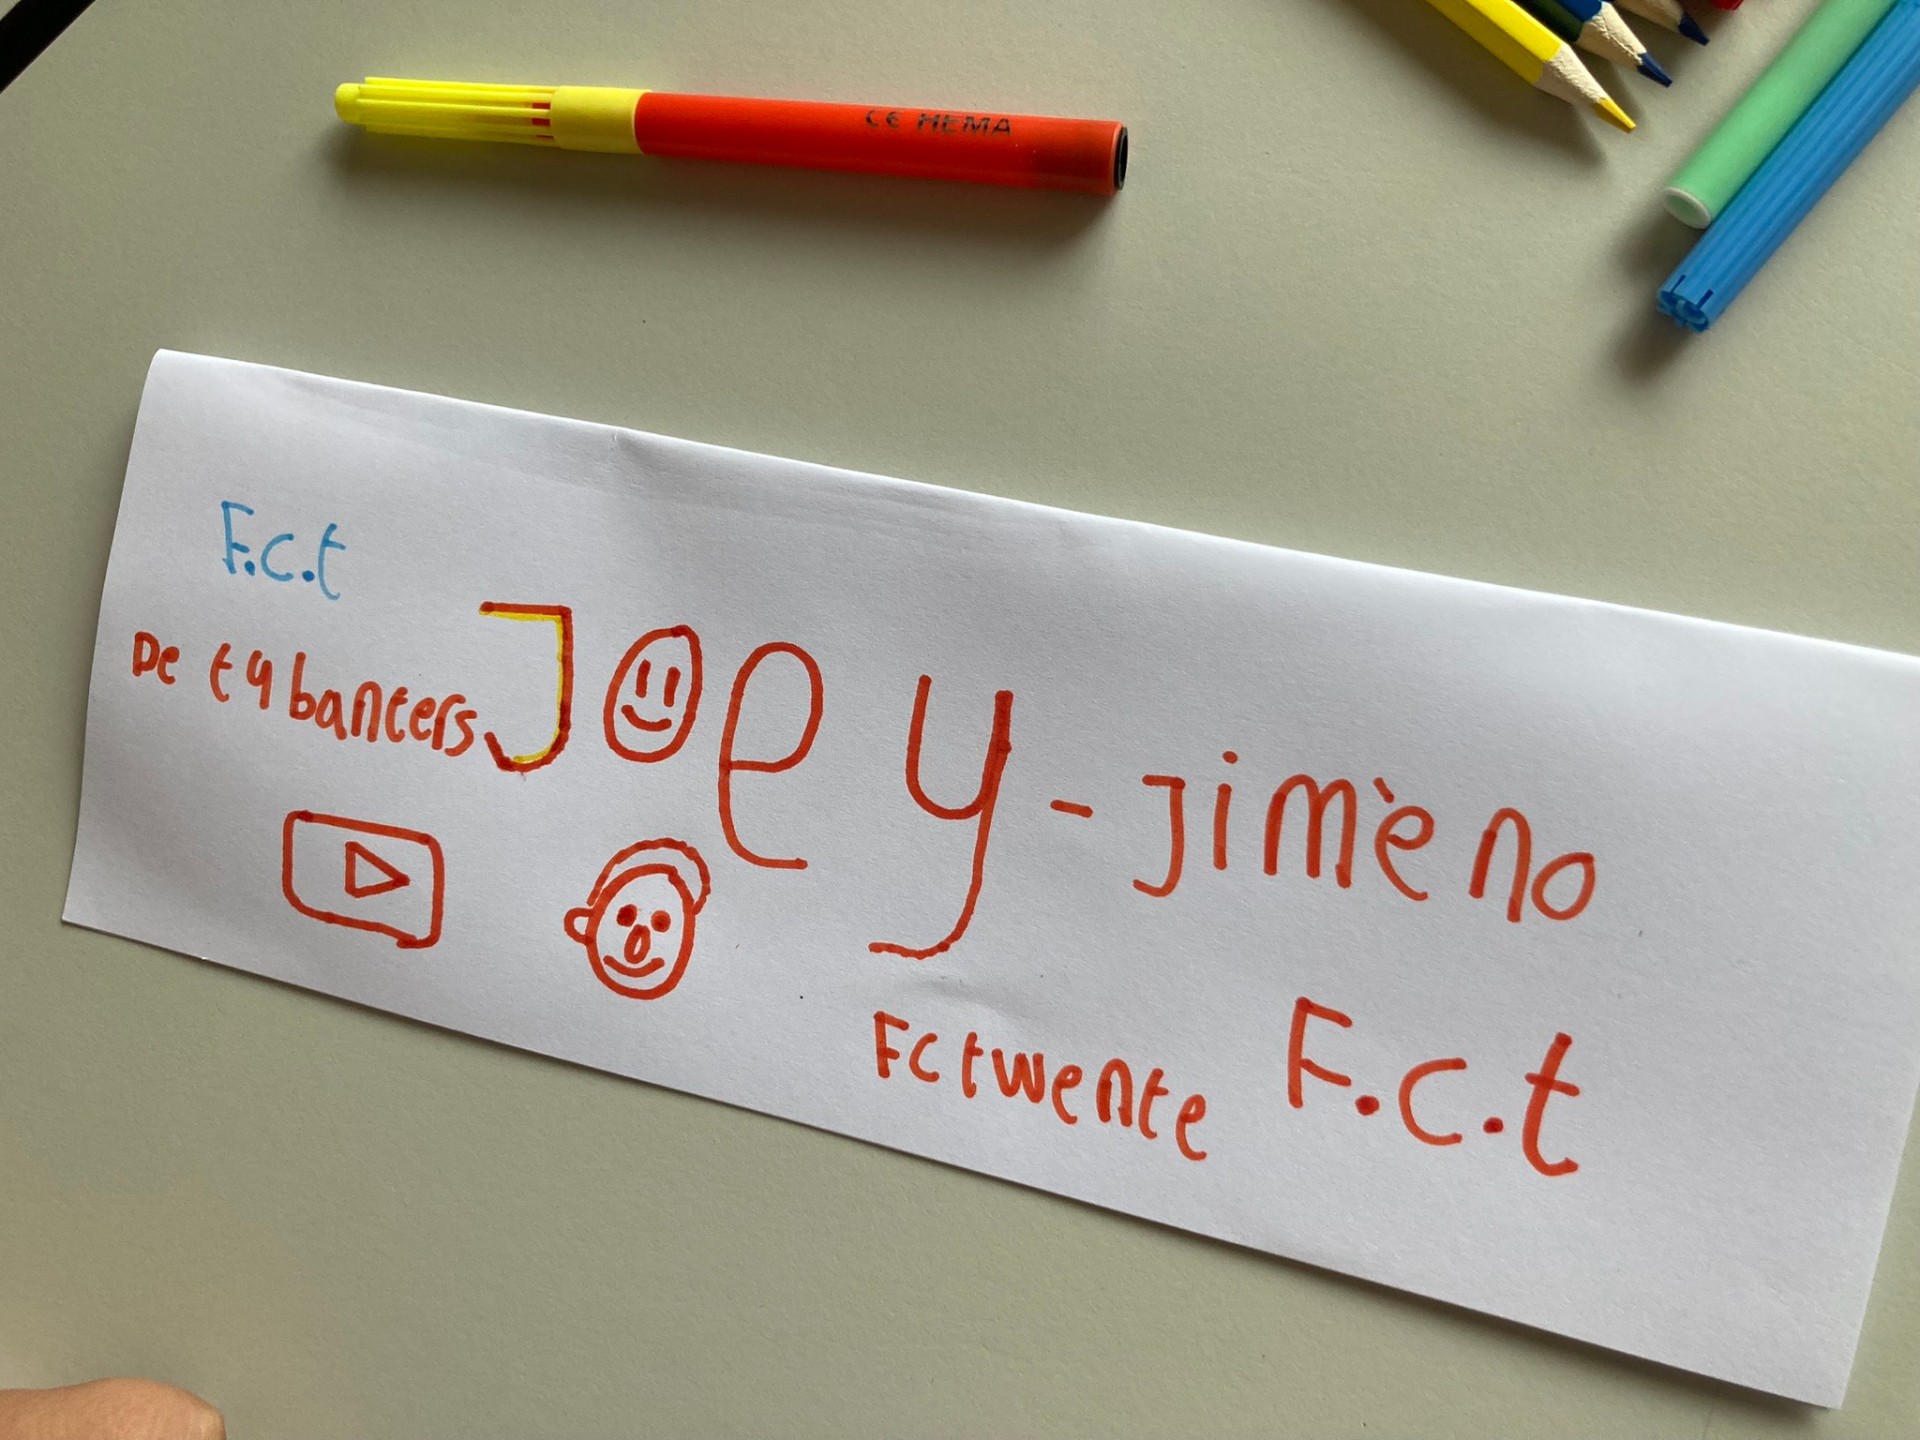 CE HEMA
F.c.t
De t4banters
Joey-jimèno
Fctwente F.c.t